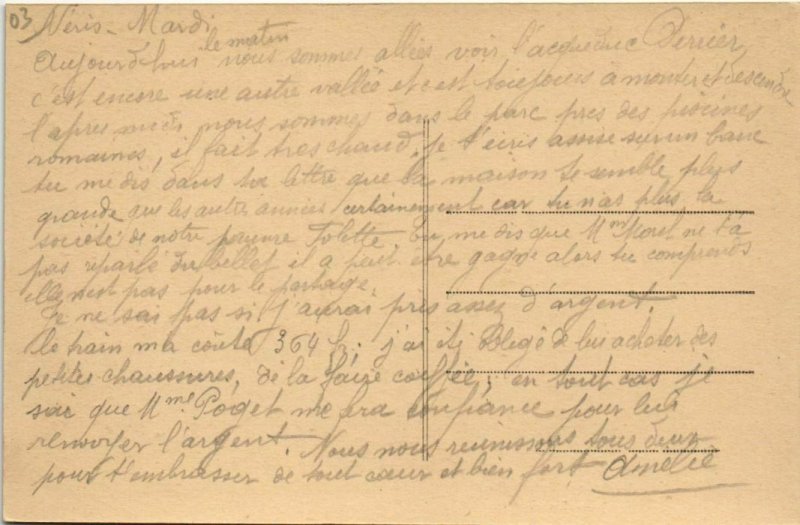 03
Néris - Mardi
le matin
Aujourd'hui nous sommes allées voir l'acqueduc Perrier,
c'est encore une autre vallée et c'est toujours à monter et descendre
l'apres midi nous sommes dans le parc pres des piscines
romaines, il fait tres chaud. je t'écris assise sur un banc
tu me dis dans ta lettre que la maison te semble plus
grande que les autres années certainement car tu n'as plus la
société de notre pauvre Tolette, tu me dis que Mme Morel ne t'a
pas reparlé du billet il a peut être gagné alors tu comprends
elle n'est pas pour le partage.
Je ne sais pas si j'aurai pris assez d'argent.
le train m'a coûté 364 fr. j'ai été obligé de lui acheter des
petites chaussures, de la faire coiffée, en tout cas je
sais que Mme Poget me fera confiance pour lui
renvoyer l'argent. Nous nous reunissons tous deux
pour t'embrasser de tout coeur et bien fort Amélie